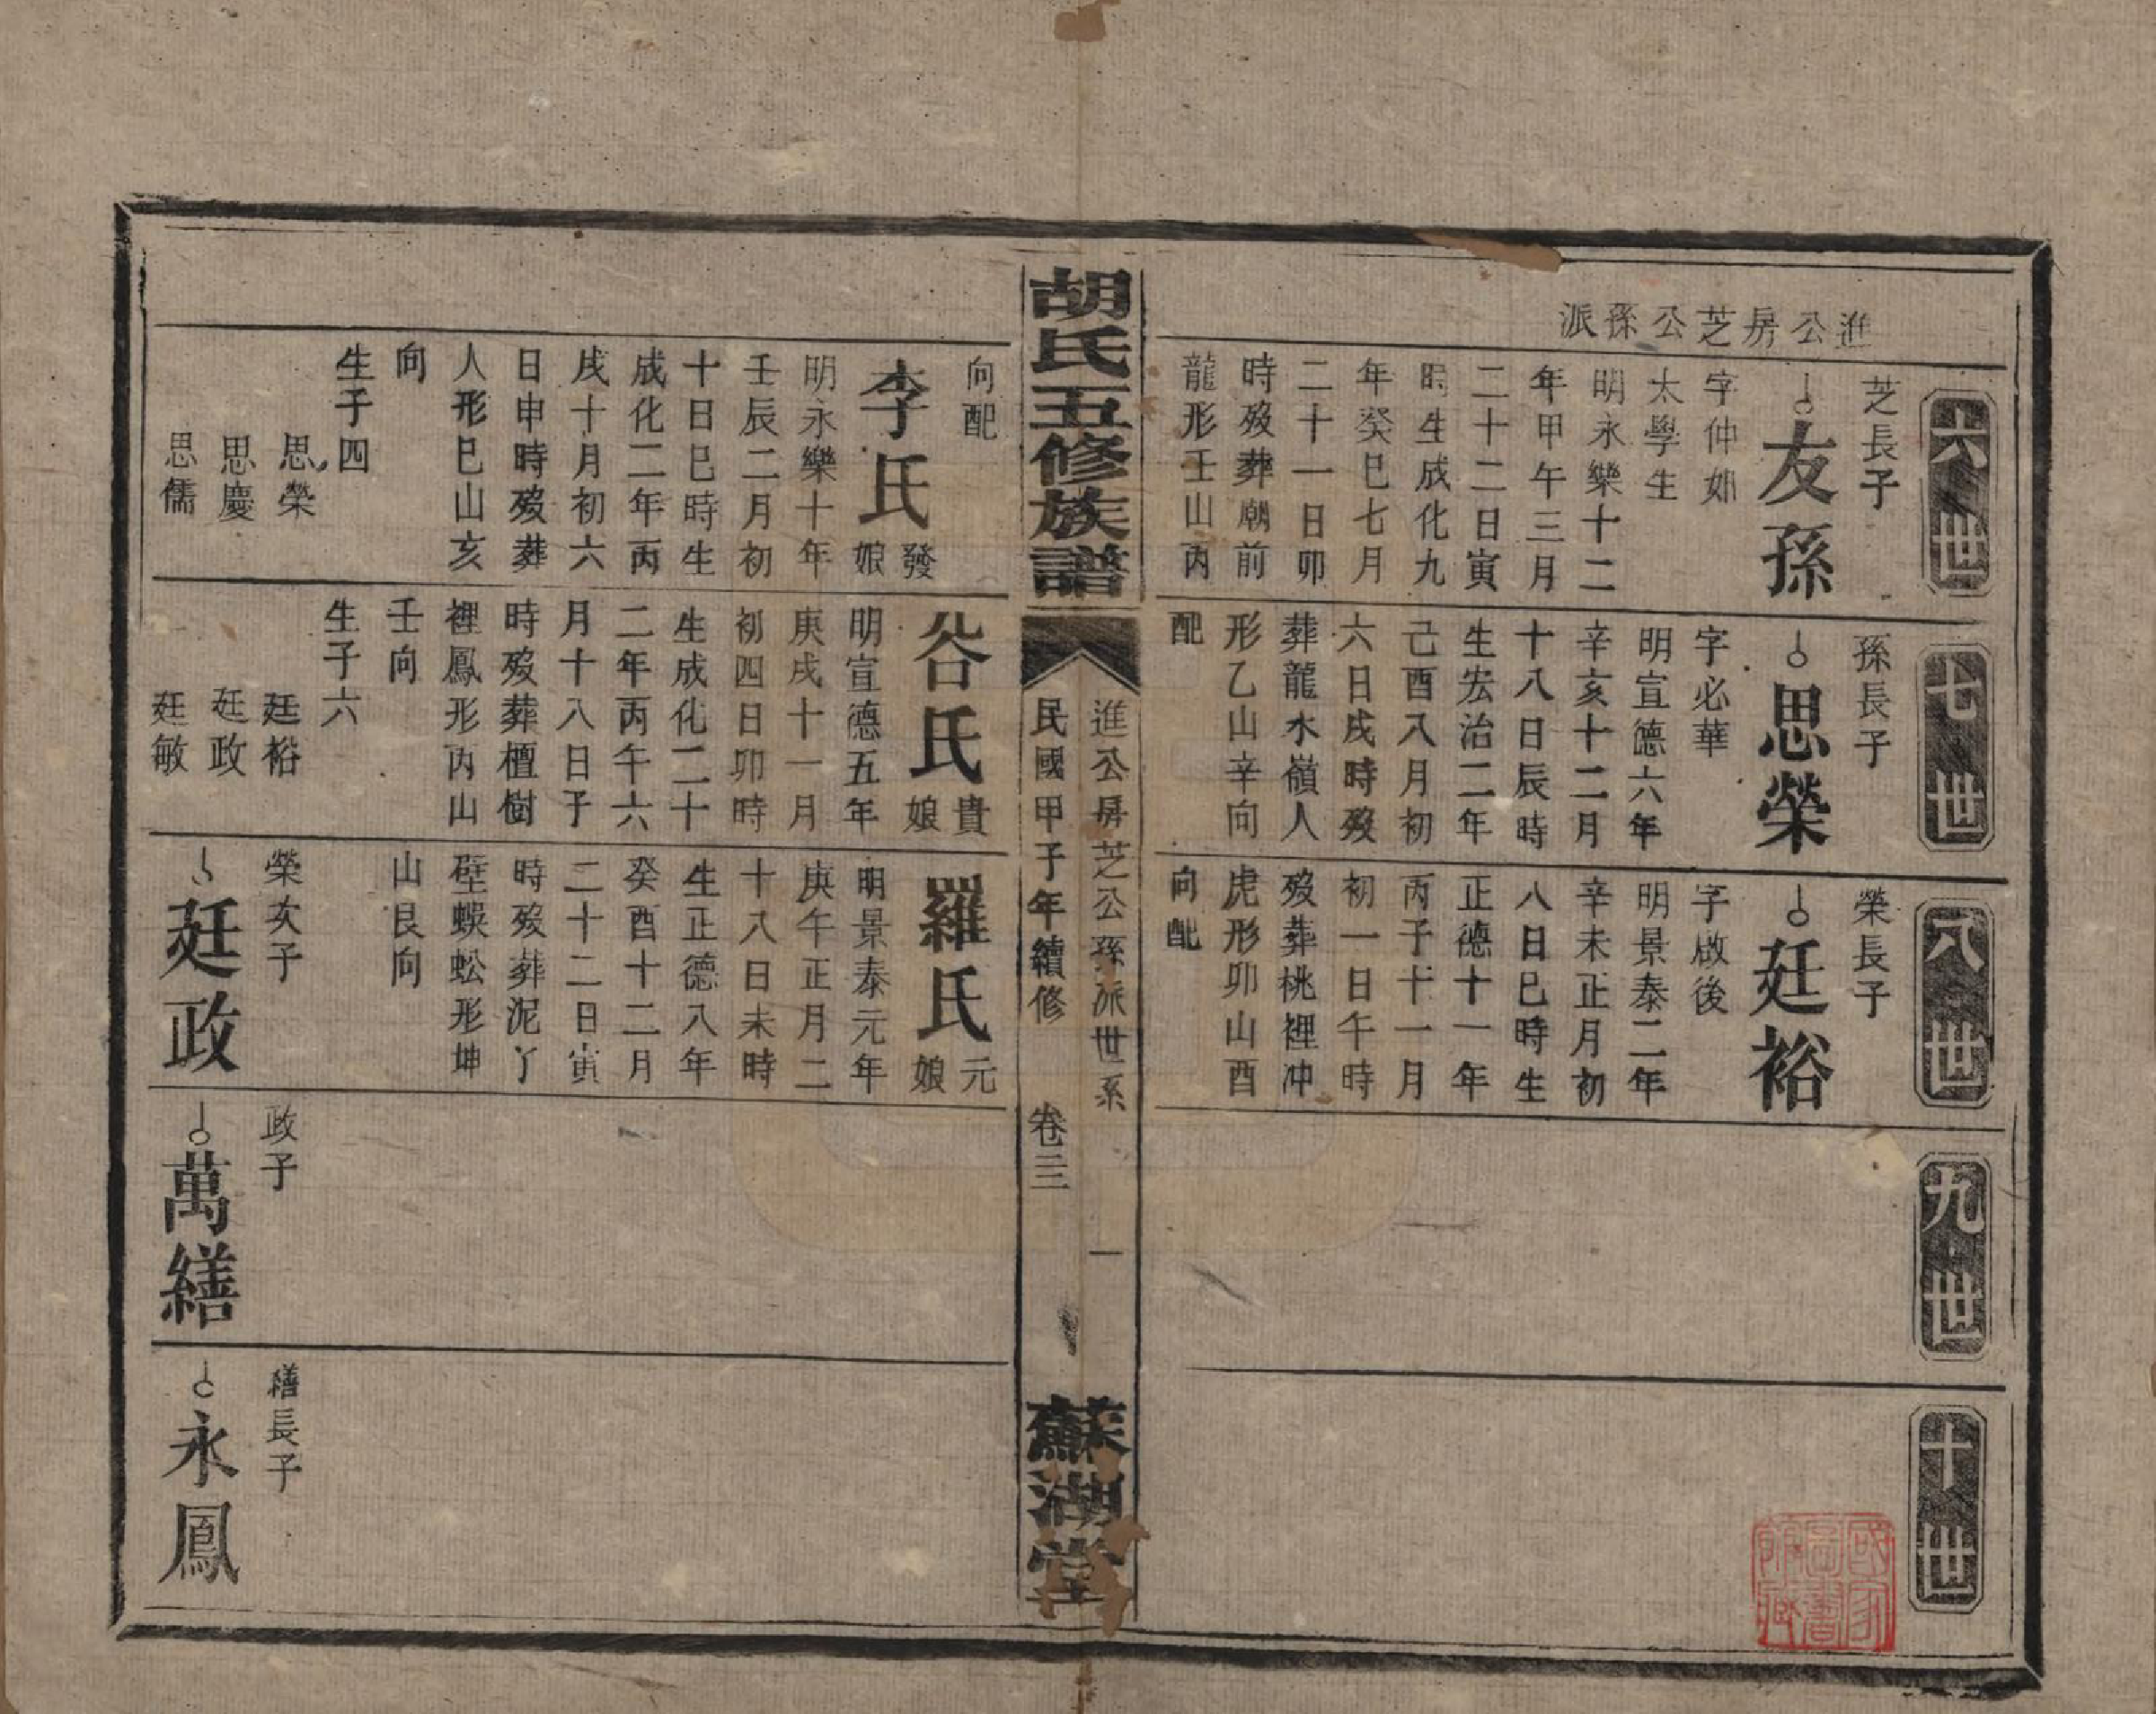 進公房芝公孫派
六世
芝長子
友孫
字仲䢺
太學生
明永樂十二
年甲午三月
二十二日寅
時生成化九
年癸巳七月
二十一日卯
時歿葬廟前
龍形壬山丙
七世
孫長子
思榮
字必華
明宣德六年
辛亥十二月
十八日辰時
生宏治二年
己酉八月初
六日戌時歿
葬龍水嶺人
形乙山辛向
配
八世
榮長子
廷裕
字啟後
明景泰二年
辛未正月初
八日巳時生
正德十一年
丙子十一月
初一日午時
歿葬桃裡冲
虎形卯山酉
向配
九世
十世
國家圖書館藏
胡氏五修族譜
進公房芝公孫派世系
民國甲子年續修
卷三
一
蘇湖堂
向配
李氏
發娘
明永樂十年
壬辰二月初
十日巳時生
成化二年丙
戌十月初六
日申時歿葬
人形巳山亥
向
生子四
思榮
思慶
思儒
谷氏
貴娘
明宣德五年
庚戌十一月
初四日卯時
生成化二十
二年丙午六
月十八日子
時歿葬檀樹
裡鳳形丙山
壬向
生子六
廷裕
廷政
廷敏
羅氏
元娘
明景泰元年
庚午正月二
十八日未時
生正德八年
癸酉十二月
二十二日寅
時歿葬泥丫
壁蜈蚣形坤
山艮向
榮次子
廷政
政子
萬繕
繕長子
永鳳